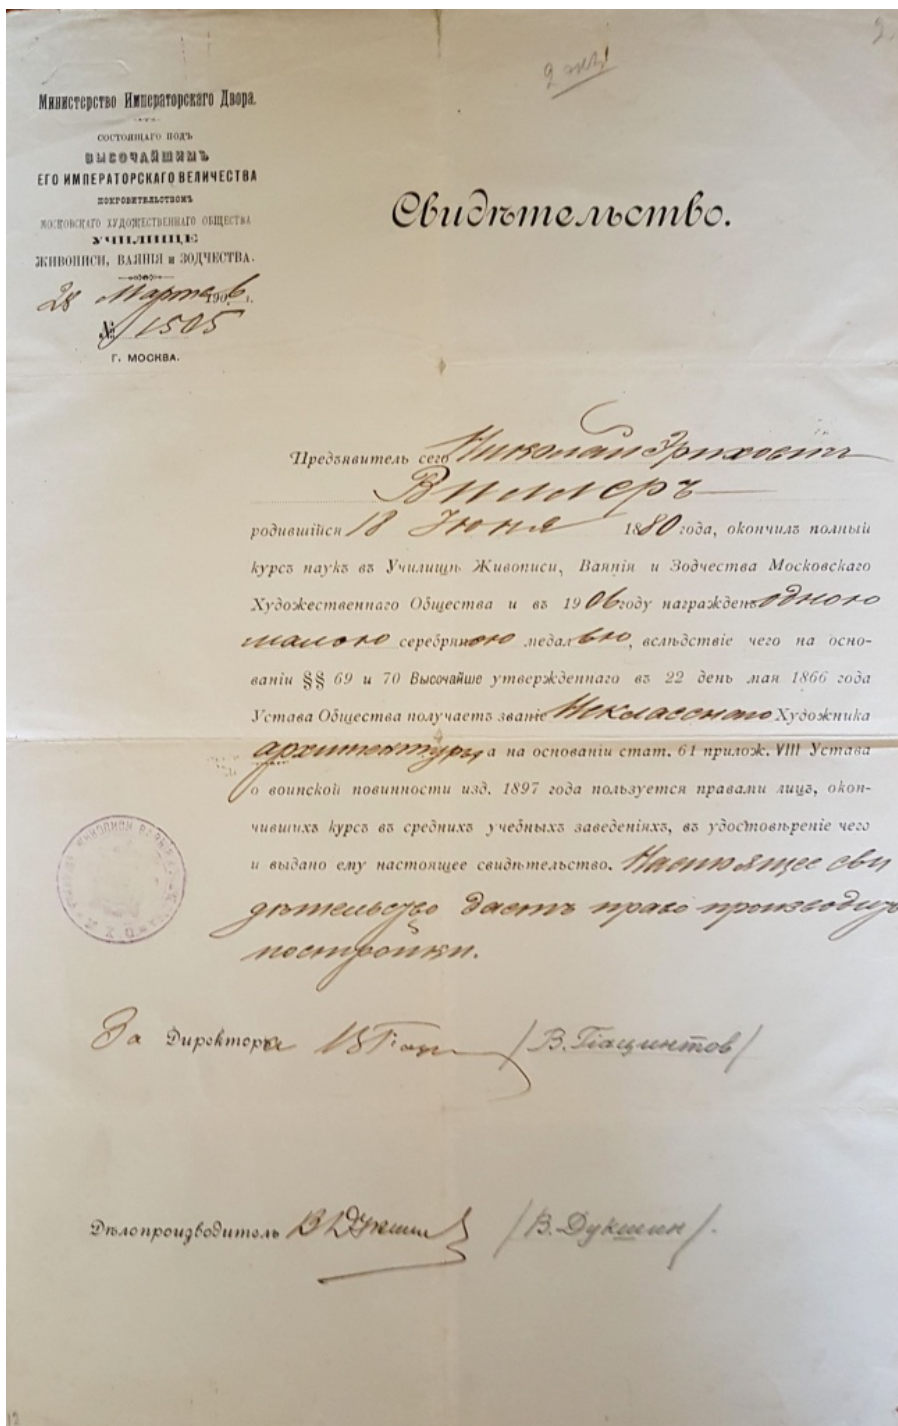 2 экз!
2.
Министерство Императорскаго Двора.
СОСТОЯЩАГО ПОДЪ
ВЫСОЧАЙШИМЪ
ЕГО ИМПЕРАТОРСКАГО ВЕЛИЧЕСТВА
ПОКРОВИТЕЛЬСТВОМЪ
МОСКОВСКАГО ХУДОЖЕСТВЕННАГО ОБЩЕСТВА
УЧИЛИЩЕ
ЖИВОПИСИ, ВАЯНІЯ и ЗОДЧЕСТВА.
28 Марта 1906 г.
№ 1505
Г. МОСКВА.
Свидѣтельство.
Предъявитель сего Николай Эриховичъ
Виллеръ
родившійся 18 Іюня 1880 года, окончилъ полный
курсъ наукъ въ Училищѣ Живописи, Ваянія и Зодчества Московскаго
Художественнаго Общества и въ 1906 году награжденъ одною
малою серебряною медалью, вслѣдствіе чего на осно-
ваніи §§ 69 и 70 Высочайше утвержденнаго въ 22 день мая 1866 года
Устава Общества получаетъ званіе Неклассного Художника
архитектуры, а на основаніи стат. 61 прилож. VIII Устава
о воинской повинности изд. 1897 года пользуется правами лицъ, окон-
чившихъ курсъ въ среднихъ учебныхъ заведеніяхъ, въ удостовѣреніе чего
и выдано ему настоящее свидѣтельство. Настоящее сви
дѣтельство даетъ право производить
постройки.
За Директора /В. Гіацинтов/
Дѣлопроизводитель В Дукшин /В. Дукшин/.
12